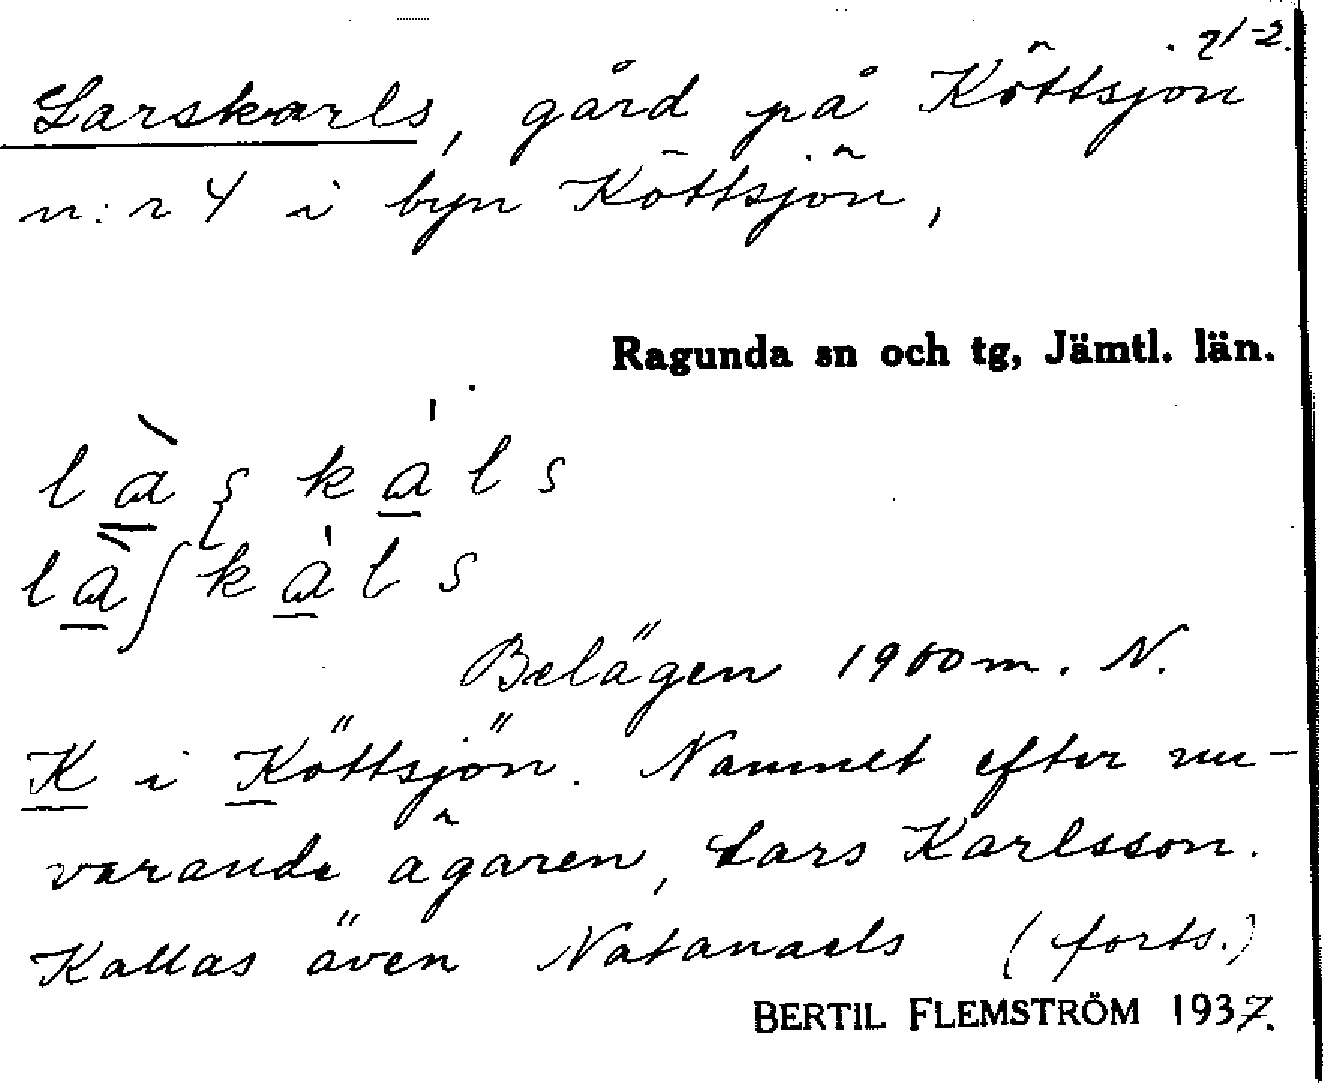 21-2.
Larskarls, gård på Köttsjön
n:r 4 i byn Köttsjön,
Ragunda sn och tg, Jämtl. län.
Belägen 1900 m. N.
K i Köttsjön. Namnet efter nu-
varande ägaren, Lars Karlsson.
Kallas även Natanaels (forts.)
BERTIL FLEMSTRÖM 1937.